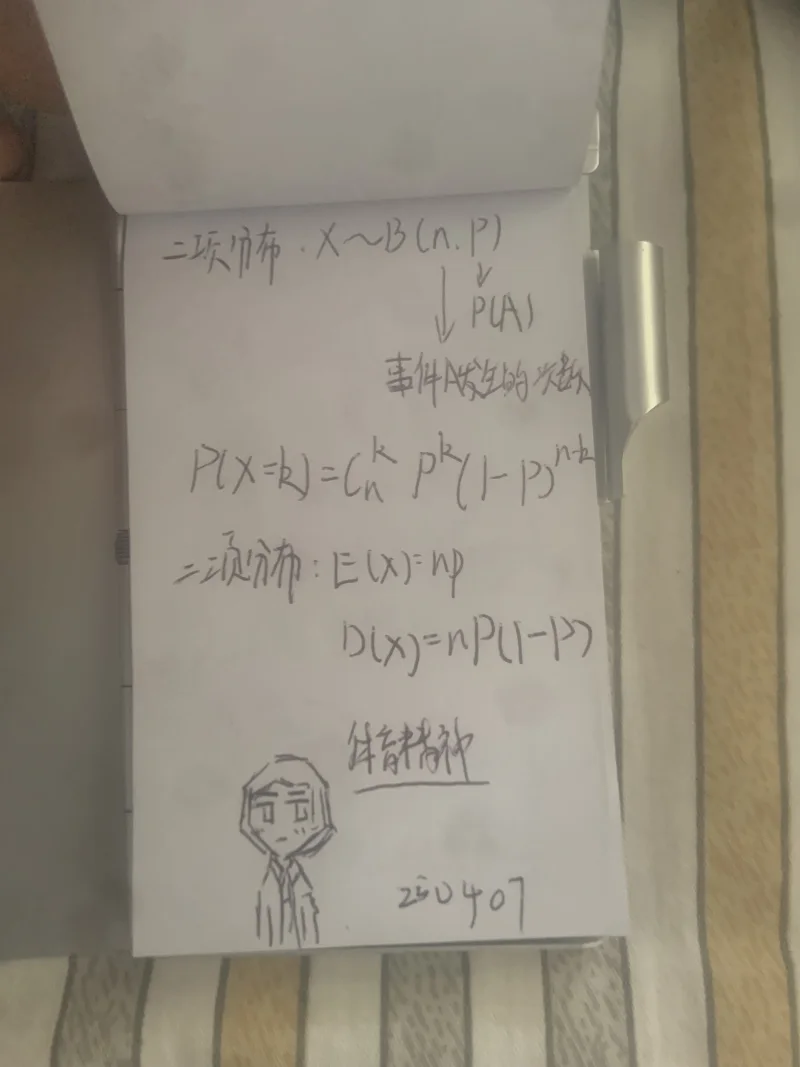 二项分布. X~B(n.P)
P(A)
事件A发生的次数
P(X=k)=Cₙᵏ Pᵏ(1-P)ⁿ⁻ᵏ
二项分布:E(X)=np
D(X)=nP(1-P)
体育精神
250407